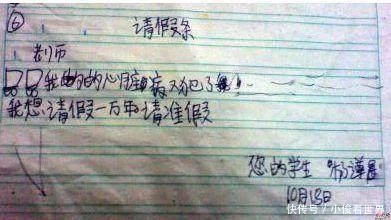 ⑥ 请假条
老师
我的的心脏病又犯了
我想请假一万年请准假
您的学生
10月18日
快传号/小俊看世界